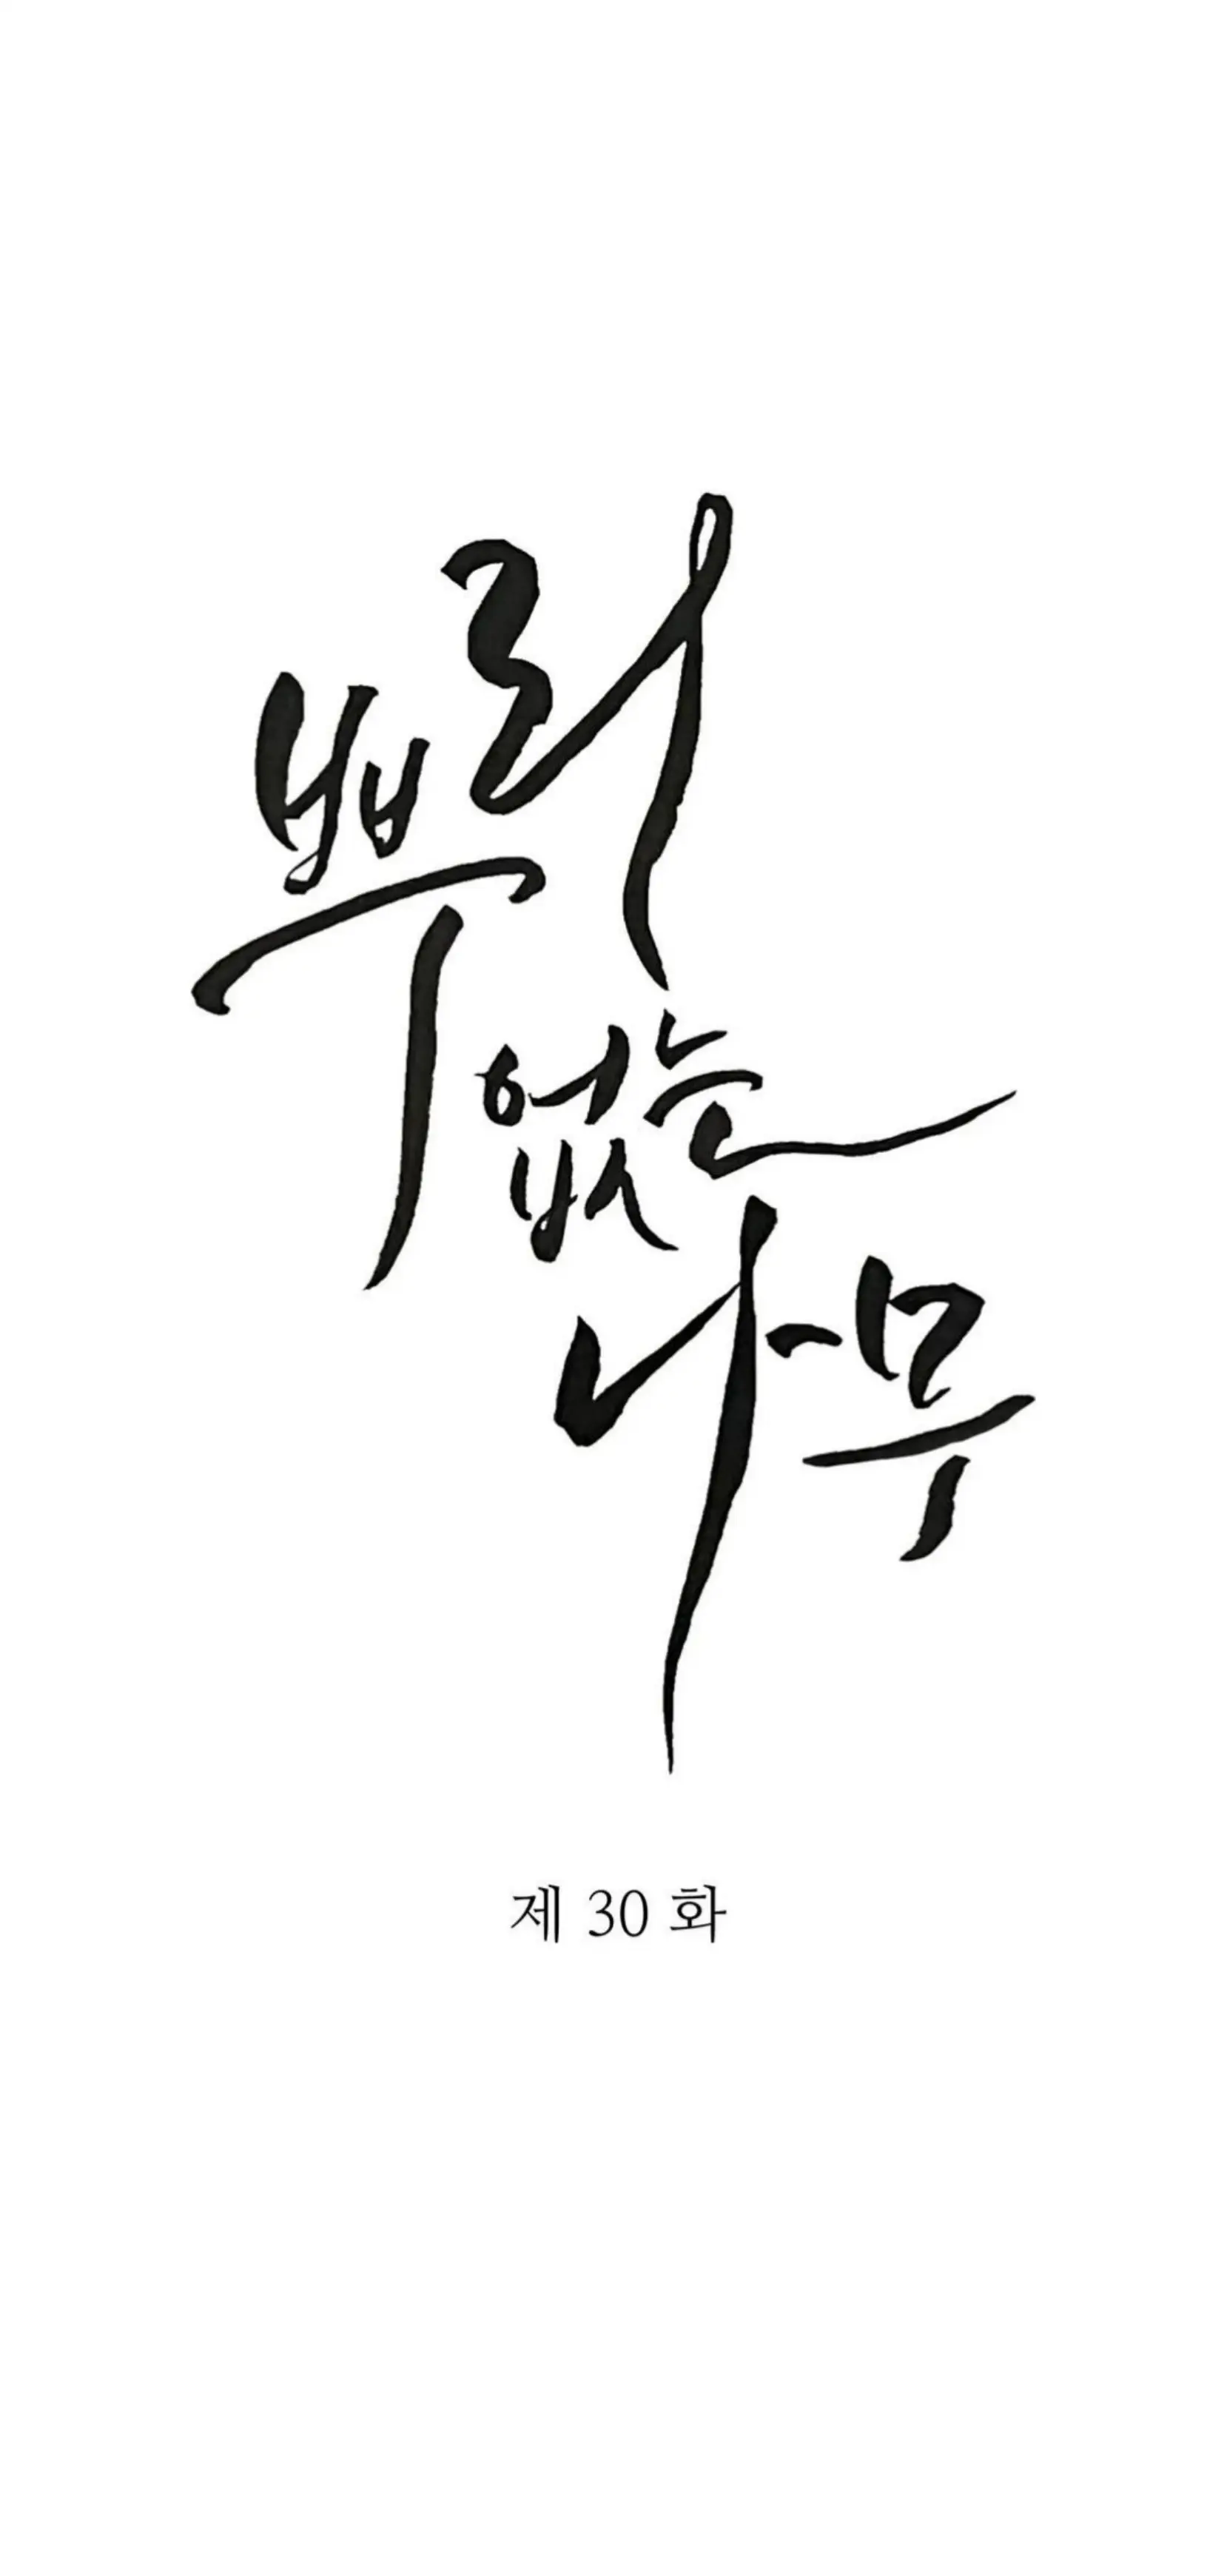 뿌리
없는
나무
제 30 화